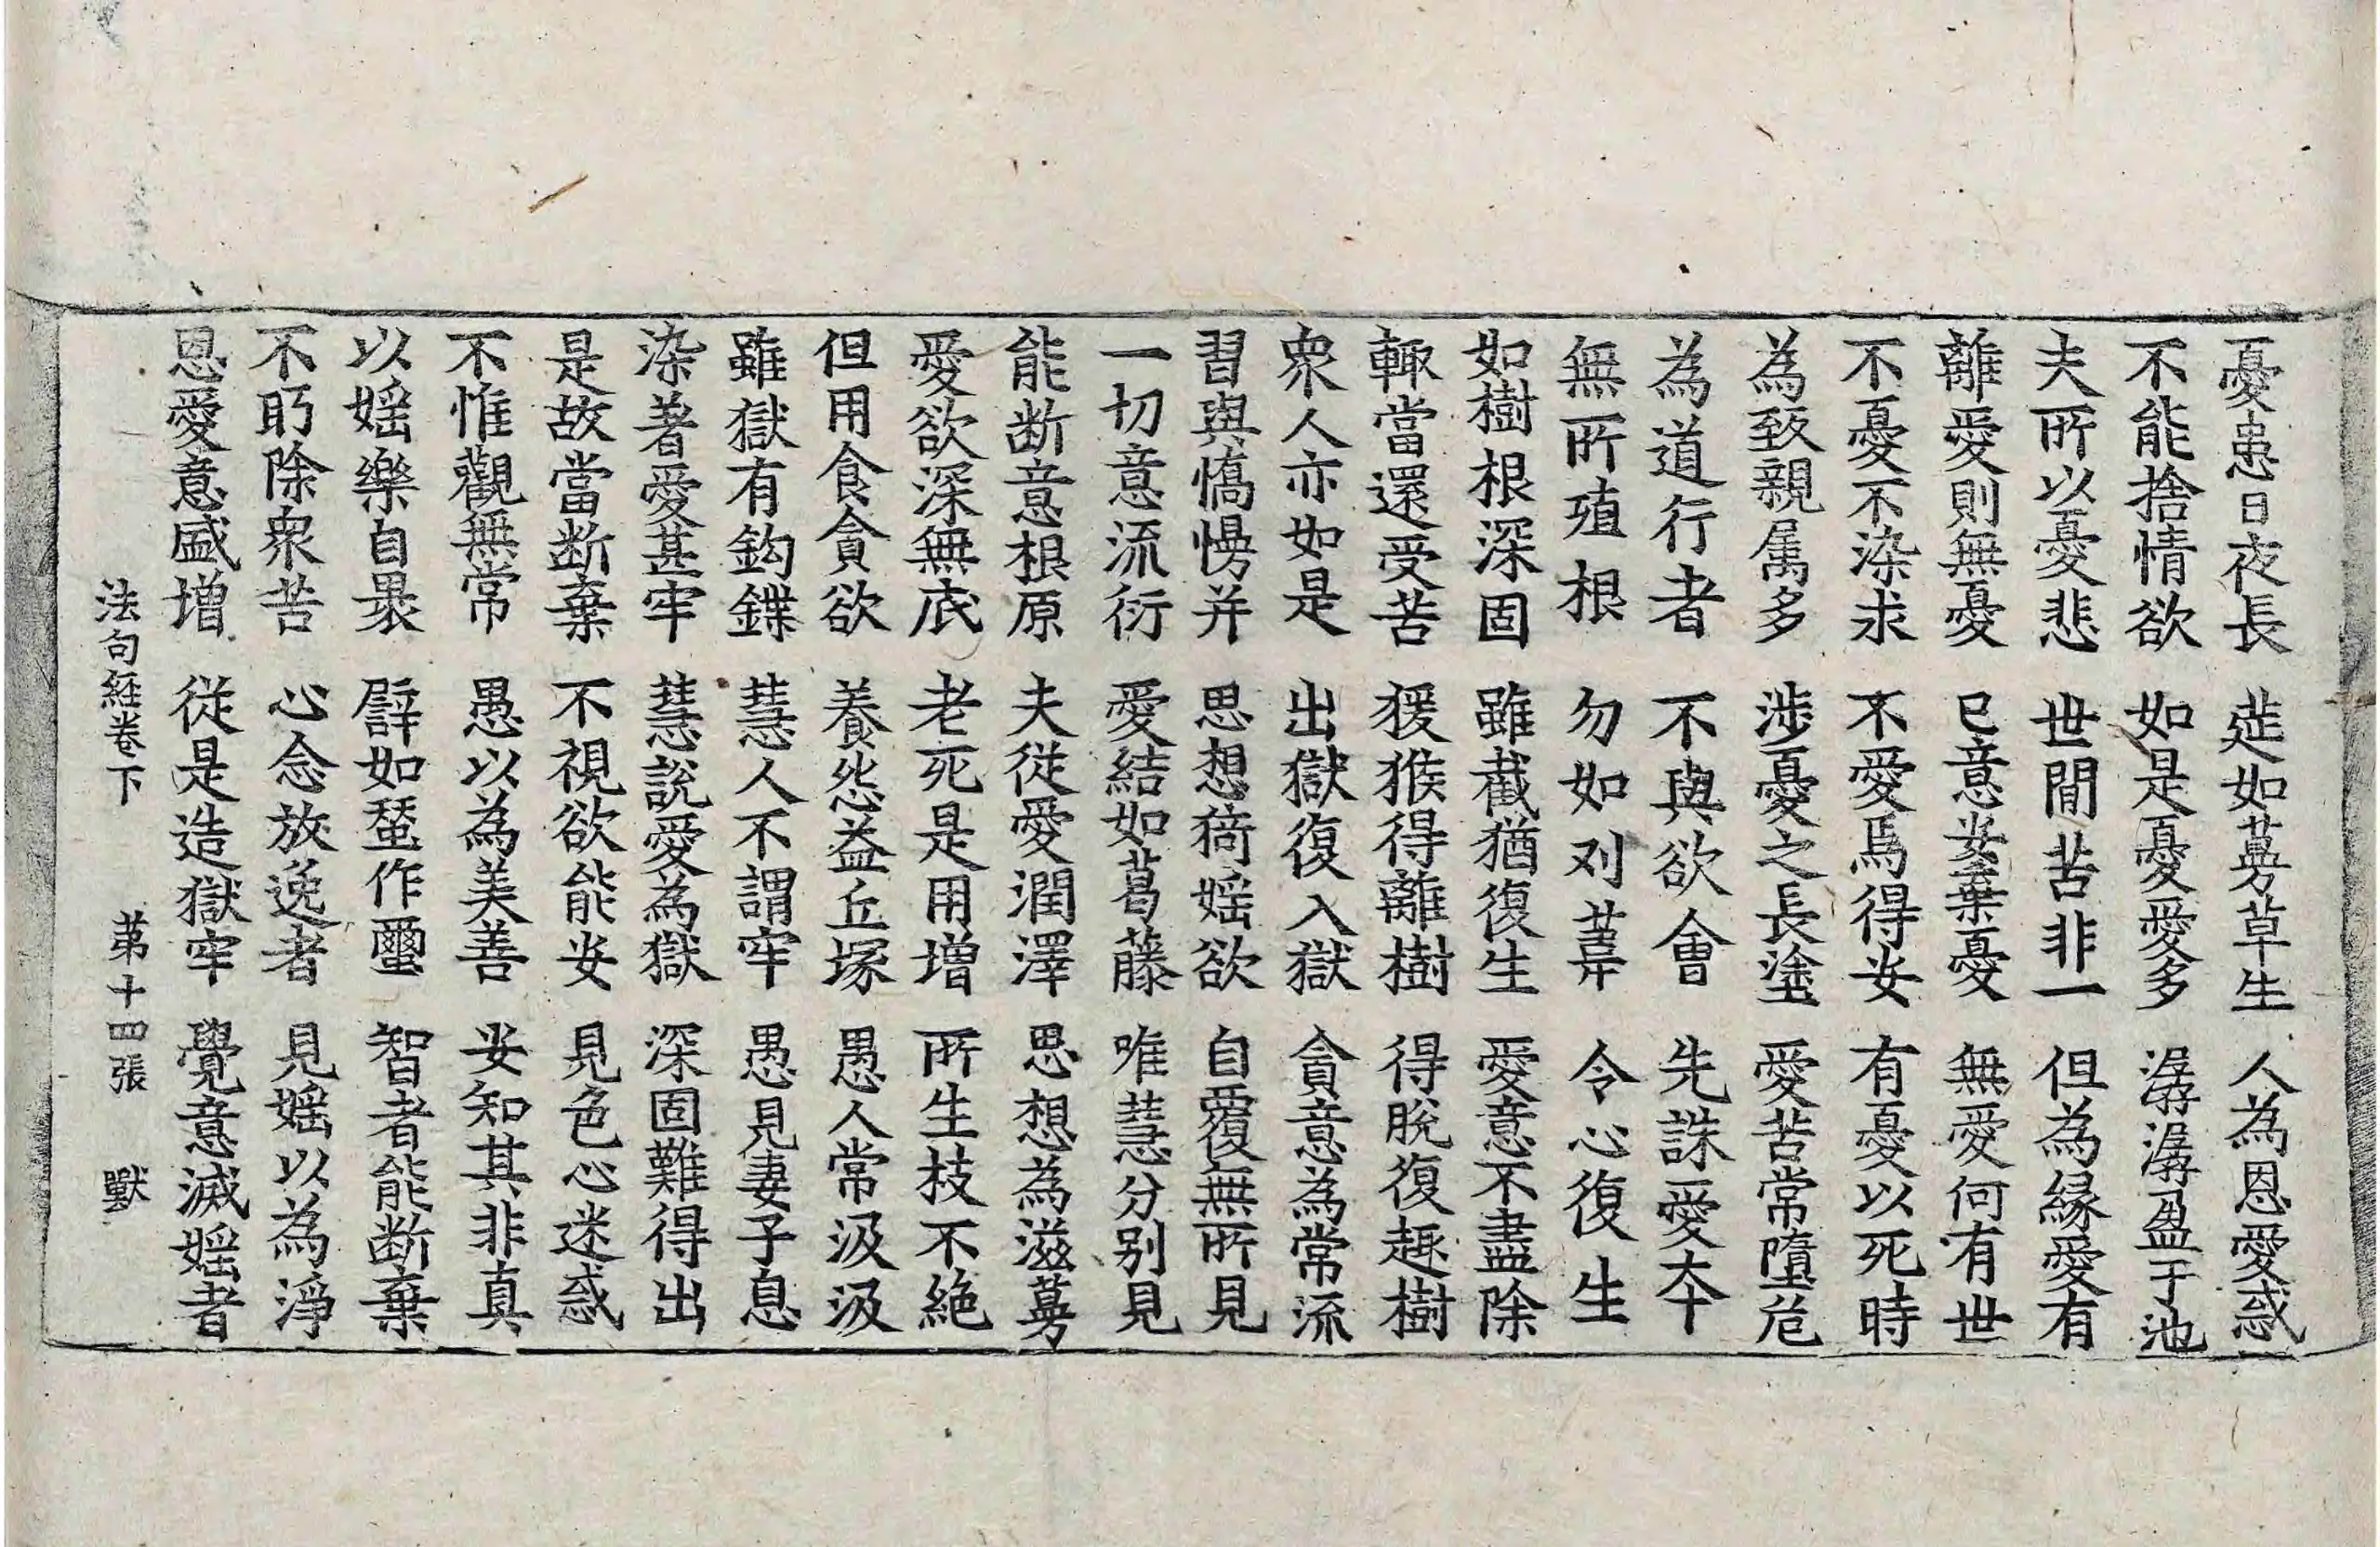 憂患日夜長 莚如蔓草生 人為恩愛惑
不能捨情欲 如是憂愛多 潺潺盈于池
夫所以憂悲 世間苦非一 但為緣愛有
離愛則無憂 已意安棄憂 無愛何有世
不憂不染求 不愛焉得安 有憂以死時
為致親属多 涉憂之長塗 愛苦常墮危
為道行者 不與欲會 先誅愛夲
無所殖根 勿如刈葦 令心復生
如樹根深固 雖截猶復生 愛意不盡除
輙當還受苦 猨猴得離樹 得脫復趣樹
衆人亦如是 出獄復入獄 貪意為常流
習與憍慢并 思想猗婬欲 自覆無所見
一切意流衍 愛結如葛藤 唯慧分别見
能断意根原 夫從愛潤澤 思想為滋蔓
愛欲深無底 老死是用增 所生枝不絶
但用食貪欲 養怨益丘塚 愚人常汲汲
雖獄有鈎鍱 慧人不謂牢 愚見妻子息
染著愛甚牢 慧說愛為獄 深固難得出
是故當断棄 不視欲能安 見色心迷惑
不惟觀無常 愚以為美善 安知其非真
以婬樂自褁 譬如蝅作蠒 智者能断棄
不眄除衆苦 心念放逸者 見婬以為淨
恩愛意盛增 從是造獄牢 覺意滅婬者
法句経卷下 第十四張 默